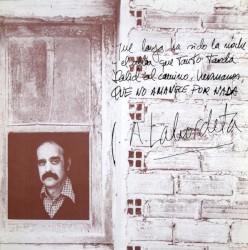 Que larga ha sido la noche
el que tanto tarda
Salid al camino, hermanos,
QUE NO AMANECE POR NADA
J. A. Labordeta